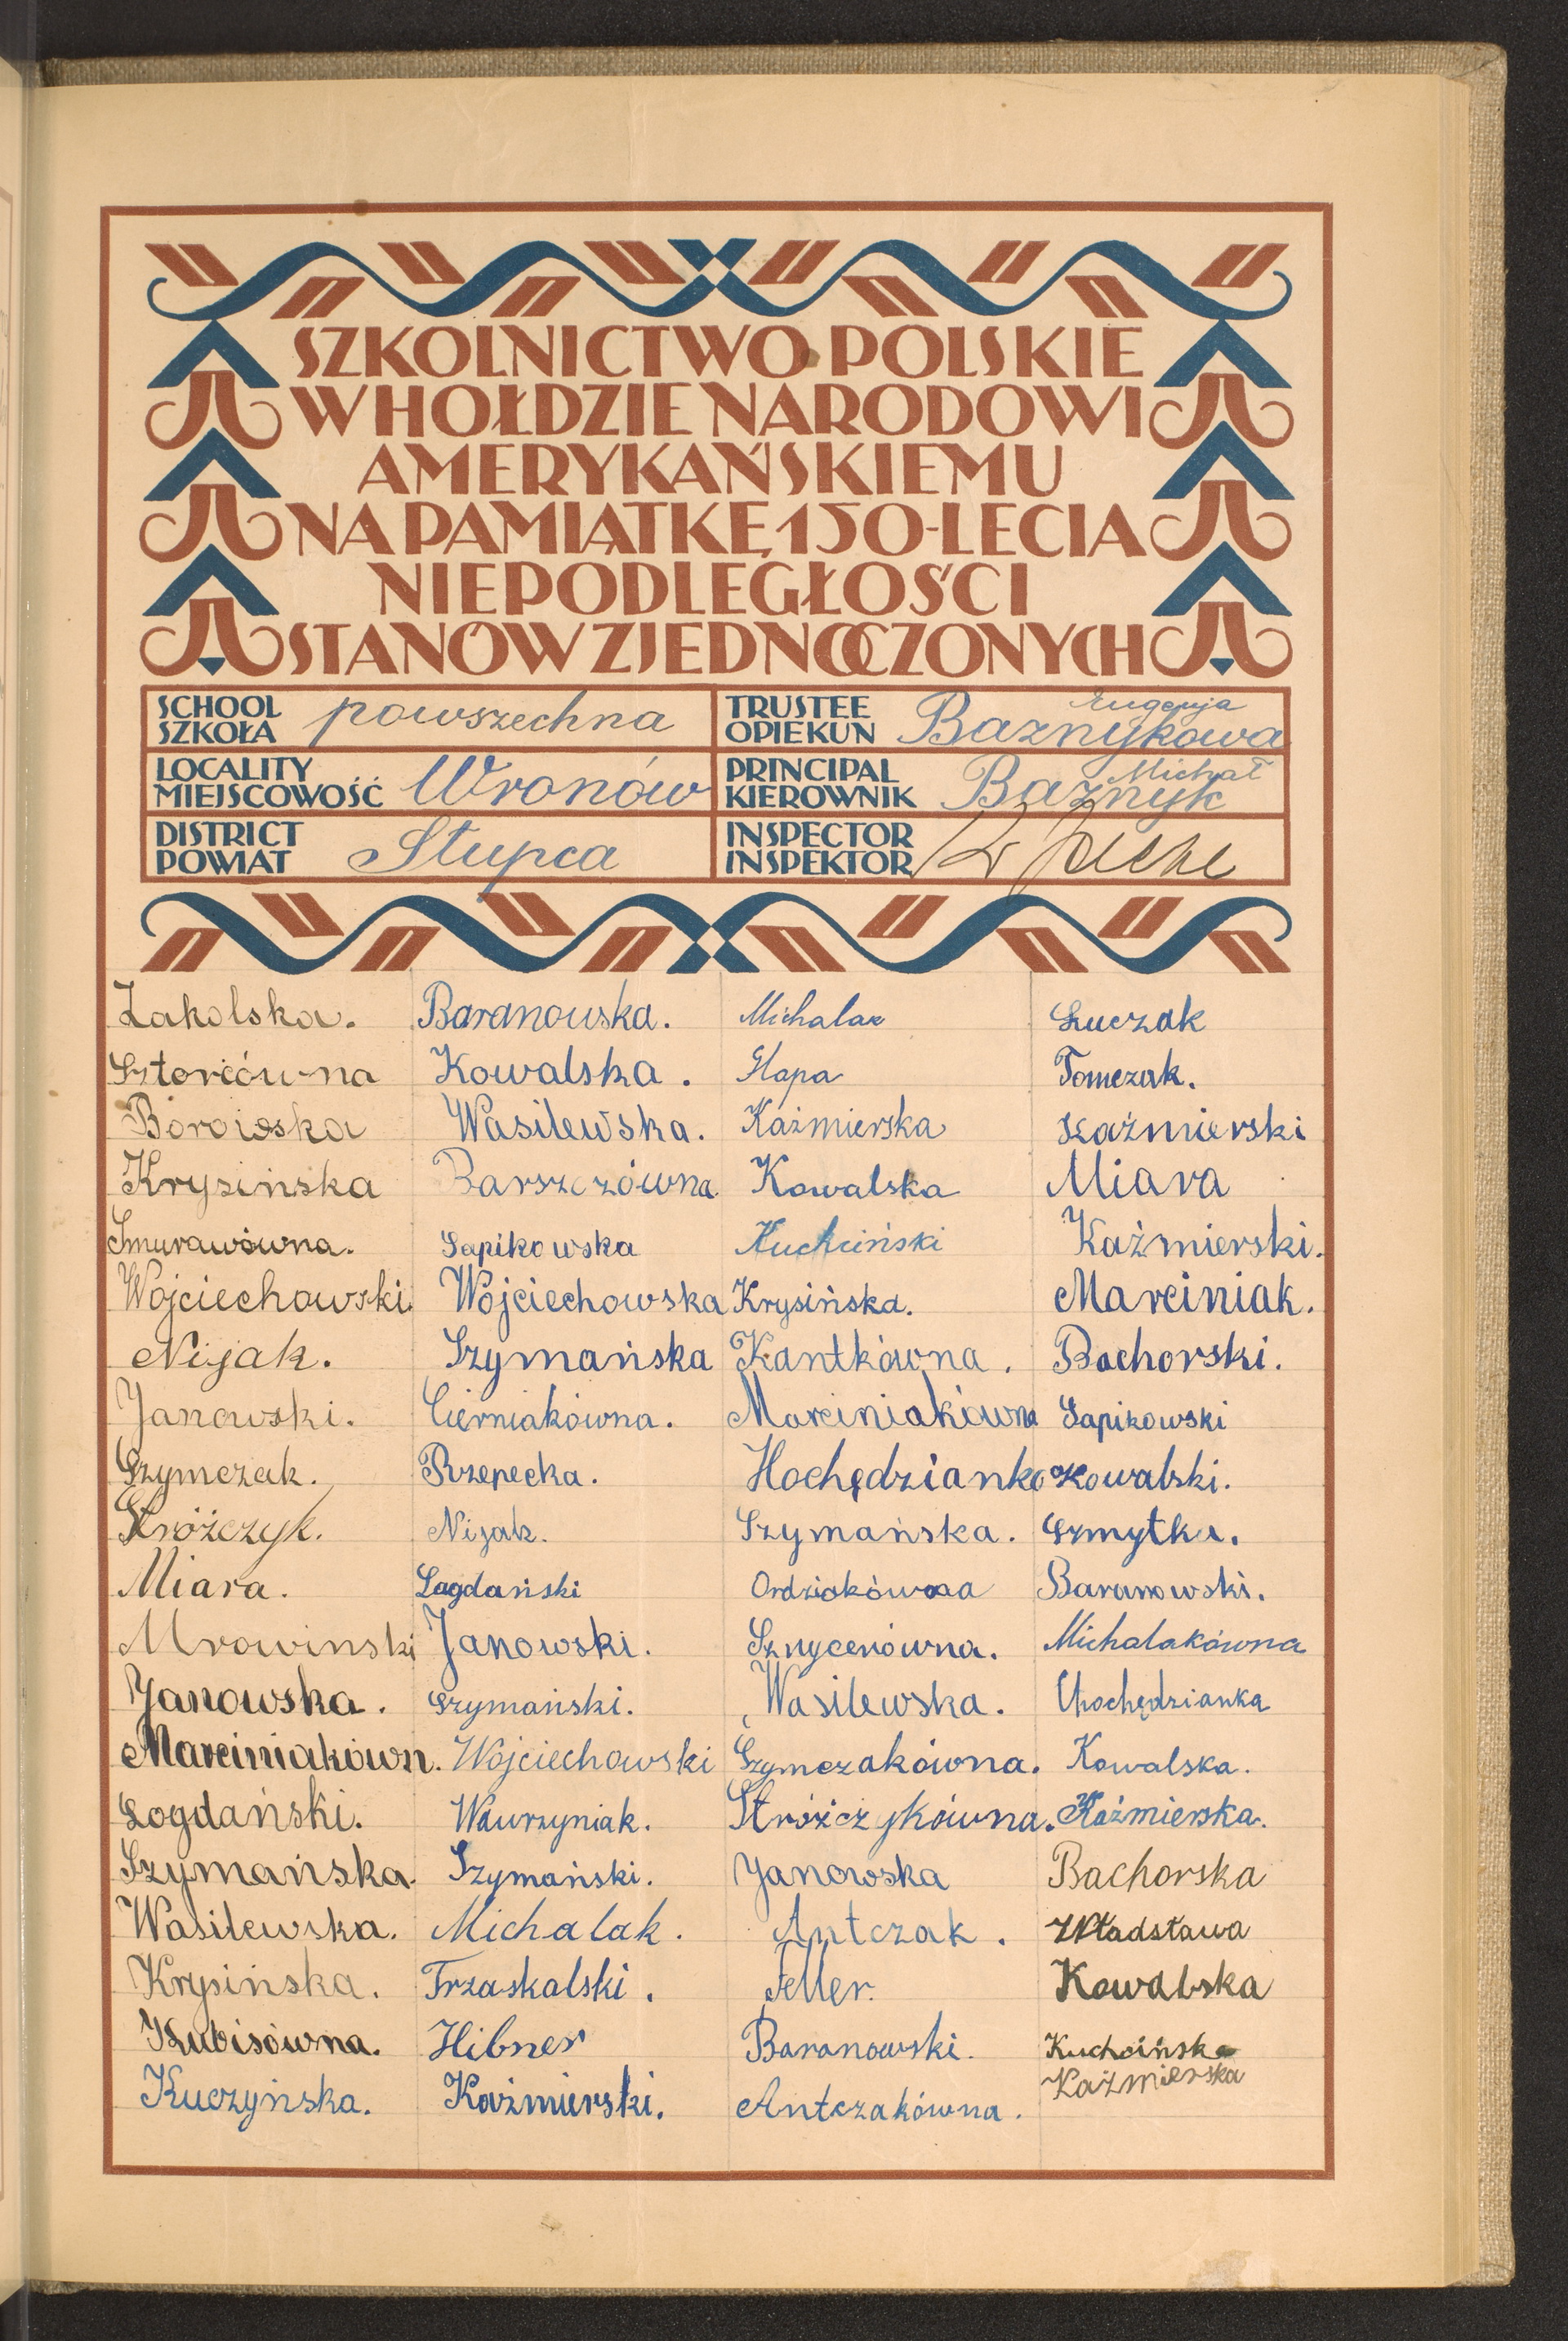 SZKOLNICTWO POLSKIE
W HOŁDZIE NARODOWI
AMERYKAŃSKIEMU
NA PAMIĄTKĘ 150-LECIA
NIEPODLEGŁOŚCI
STANÓW ZJEDNOCZONYCH
SCHOOL SZKOŁA powszechna TRUSTEE OPIEKUN Eugenja Baznykowa
LOCALITY MIEJSCOWOŚĆ Wronów PRINCIPAL KIEROWNIK Michał Baznyk
DISTRICT POWIAT Słupca INSPECTOR INSPEKTOR
Zakolska. Baranowska. Michalak Łuczak
Kowalska. Hapa Tomczak.
Borowska Wasilewska. Kaźmierska Kaźmierski
Krysińska Barszczówna. Kowalska Miara
Smurawówna. Łapikowska Kuchciński Kaźmierski.
Wojciechowski Wojciechowska Krysińska. Marciniak.
Nijak. Szymańska Kantkówna. Bachorski.
Janowski. Cierniakówna. Marciniakówna Łapikowski
Szymczak. Rzepecka. Hochędzianka Kowalski.
Stróżczyk. Nijak. Szymańska. Szmytka.
Miara. Łagdański Baranowski.
Mrowinski Janowski. Sznycerówna. Michalakówna
Janowska. Szymański. Wasilewska. Chochędzianka
Marciniakówn. Wojciechowski Szymczakówna. Kowalska.
Łogdański. Wawrzyniak. Stróżczykówna. Kaźmierska.
Szymańska. Szymański. Janowska Bachorska
Wasilewska. Michalak. Antczak. Władsława
Krysińska. Trzaskalski. Feller. Kowalska
Kubisówna. Hibner Baranowski. Kuchcińska
Kuczyńska. Kaźmierski. Antczakówna. Kaźmierska